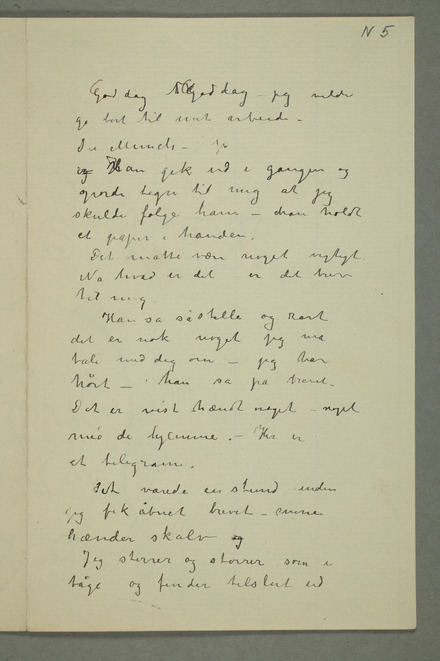 N 5
God dag Goddag – jeg vilde
gå bort til mit arbeide –
De Munch – Ja
Han gik ud i gangen og
gjorde tegn til mig at jeg
skulde følge ham – han holdt
et papir i hånden.
Det måtte være noget vigtigt
Na hvad er det – er det brev
til mig
Han sa så stille og rart
det er nok noget jeg må
tale med dig om – jeg har
hørt – han sa på brevet.
Det er vist hændt noget – noget
med de hjemme. – Her er
et telegram.
Det varede en stund inden
jeg fik åbnet brevet – mine
hænder skalv og
Jeg stirrer og stirrer som i
tåge og finder tilslut ud